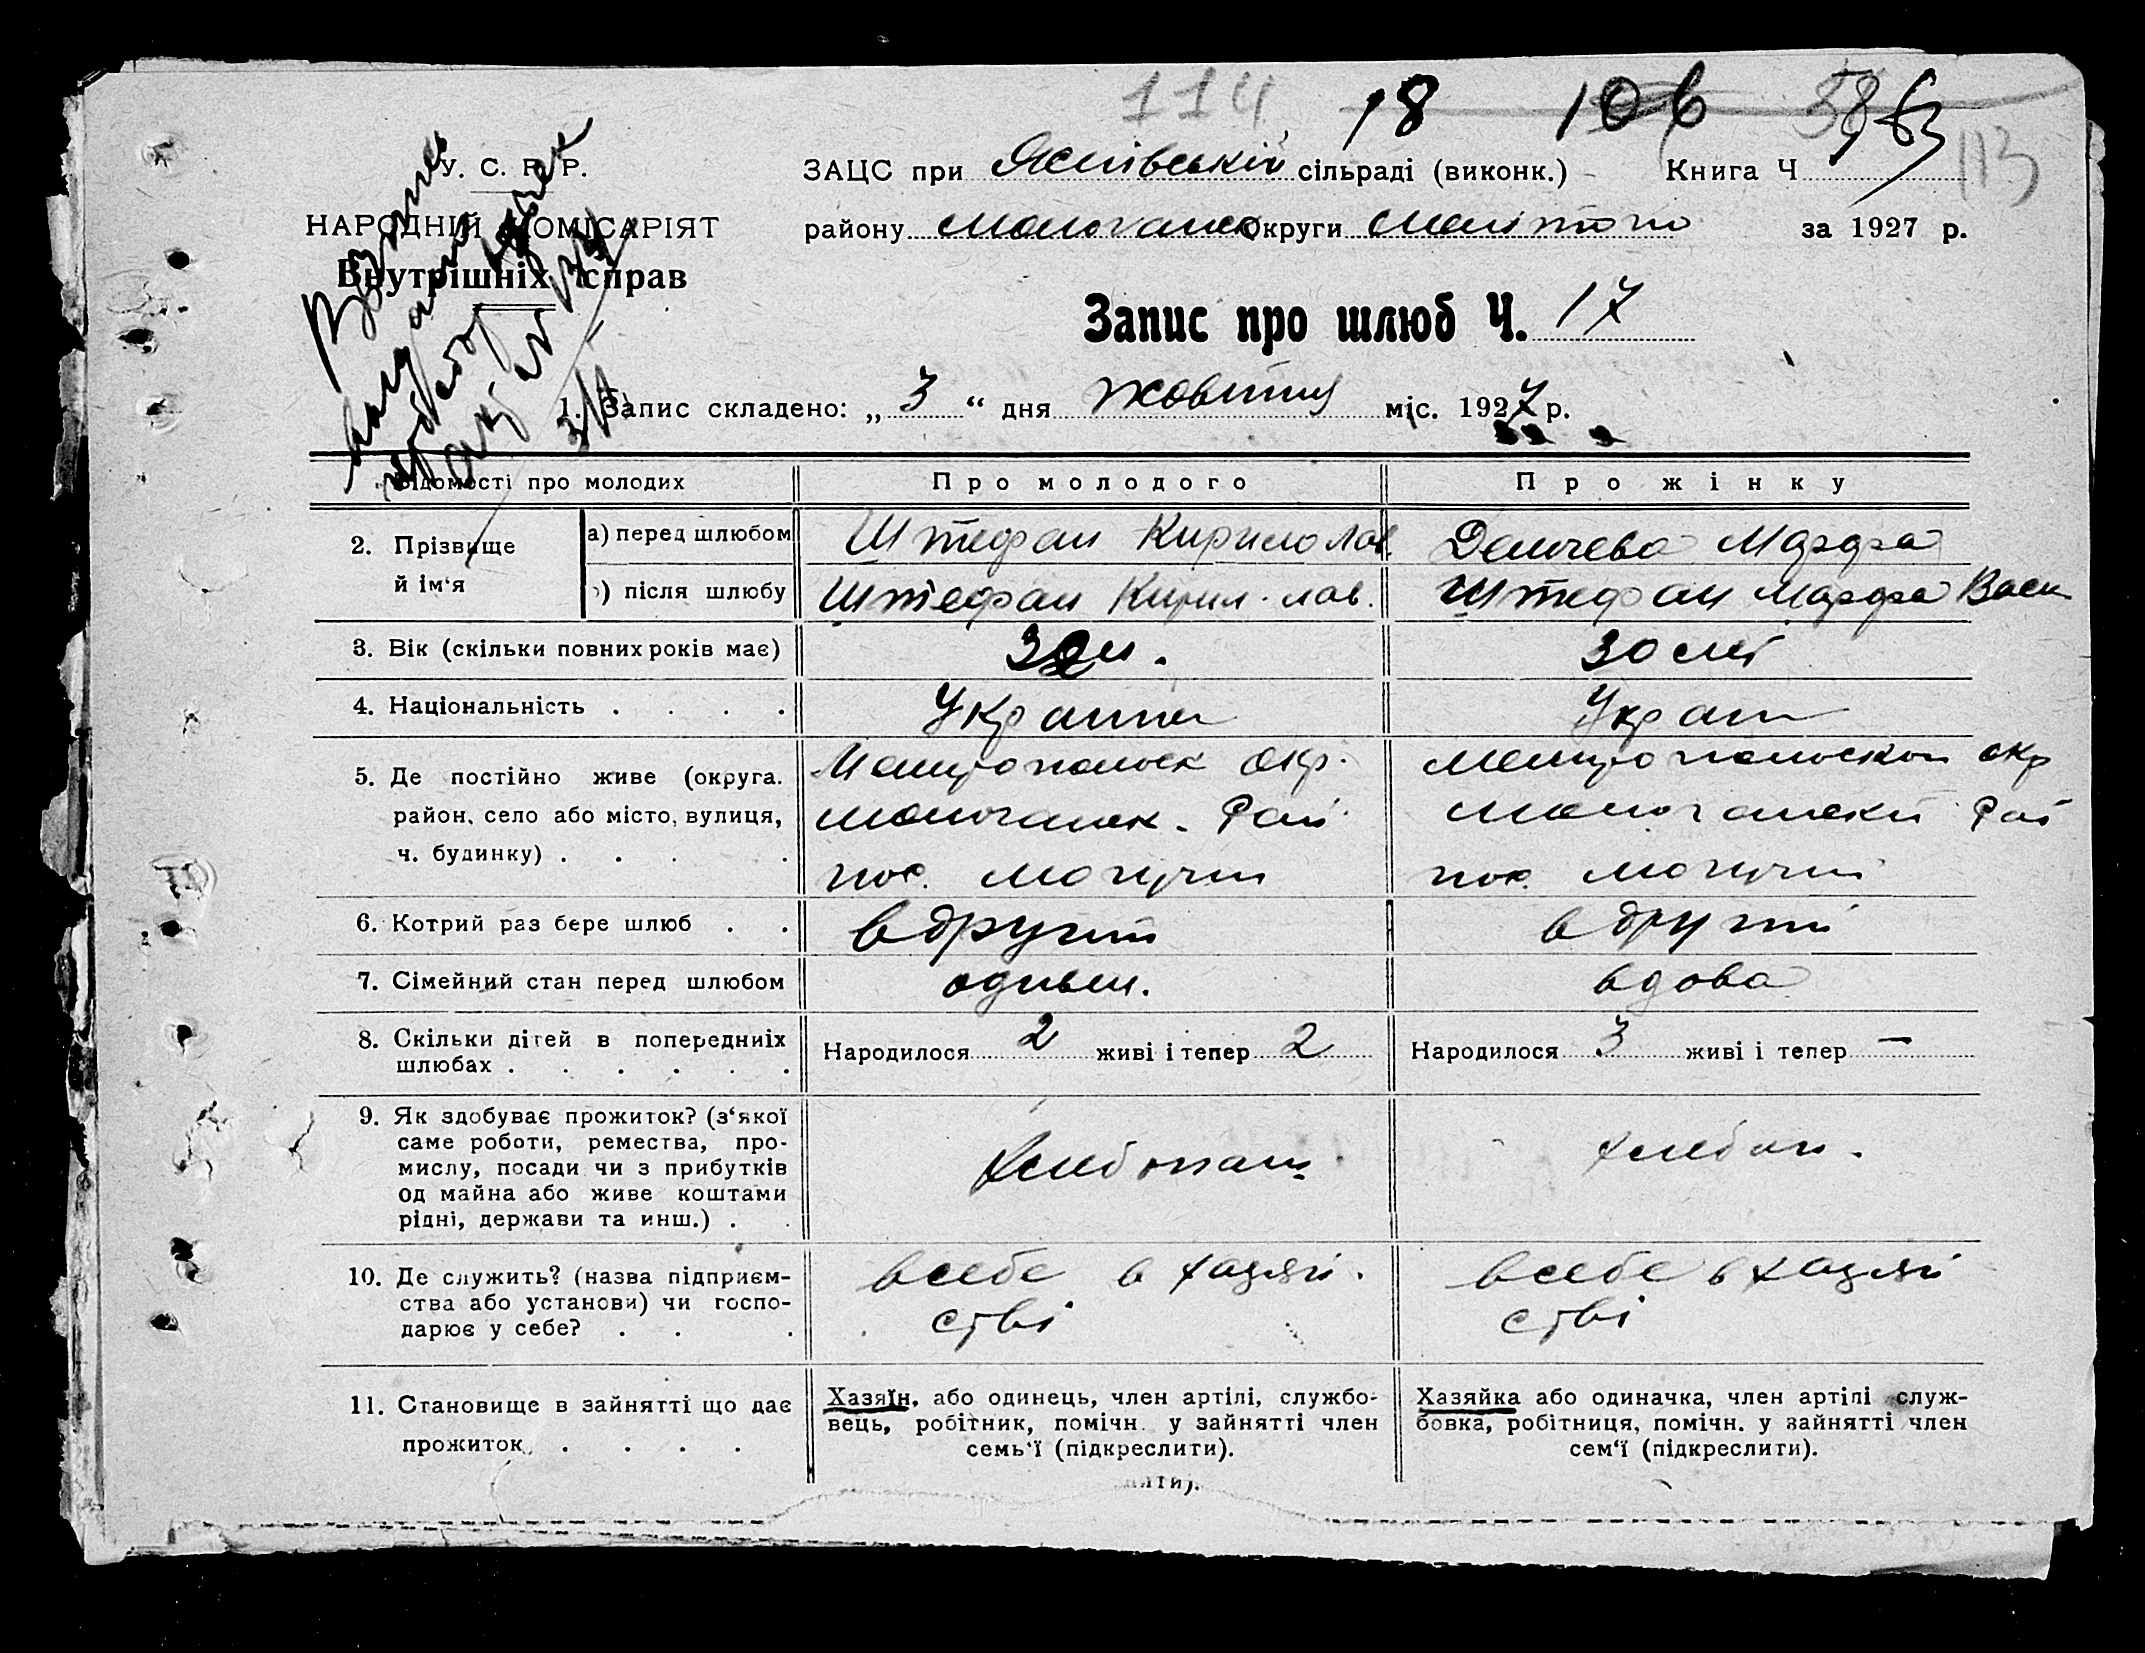 114 18 106 58 63
113
У. С. Р. Р.
ЗАЦС при сільраді (виконк.) Книга Ч
НАРОДНІЙ КОМІСАРІЯТ
району Молочанск округи за 1927 р.
Внутрішніх справ
Запис про шлюб Ч. 17
1. Запис складено: „ 3 “ дня жовтня міс. 1927 р.
Відомості про молодих Про молодого Про жінку
2. Прізвище й ім‘я
а) перед шлюбом Штефан Кирило Лав. Марфа
б) після шлюбу Штефан Кирил. лав. Штефан Марфа Васи
3. Вік (скільки повних років має) 30 літ
4. Національність . . . . Украіна Украін
5. Де постійно живе (округа.
район, село або місто, вулиця,
ч. будинку) . . . .
Мелитопольск окр.
Молочанск. Рай
пос. Могучий
Мелитопольской окр
Молочанский Рай
пос. Могучий
6. Котрий раз бере шлюб . . в другий в другий
7. Сімейний стан перед шлюбом вдова
8. Скільки дітей в попередниіх
шлюбах . . . . . .
Народилося 2 живі і тепер 2 Народилося 3 живі і тепер —
9. Як здобуває прожиток? (з‘якої
саме роботи, ремества, про-
мислу, посади чи з прибутків
од майна або живе коштами
рідні, держави та инш.) . .
хлебопаш. хлебоп.
10. Де служить? (назва підприєм-
ства або установи) чи госпо-
дарює у себе? . . .
в себе в хазяй.
стві
в себе в хазяй
стві
11. Становище в зайнятті що дає
прожиток . . . .
Хазяїн, або одинець, член артілі, службо-
вець, робітник, помічн. у зайнятті член
семь‘ї (підкреслити).
Хазяйка або одиначка, член артілі служ-
бовка, робітниця, помічн. у зайнятті член
сем‘ї (підкреслити).
лити).